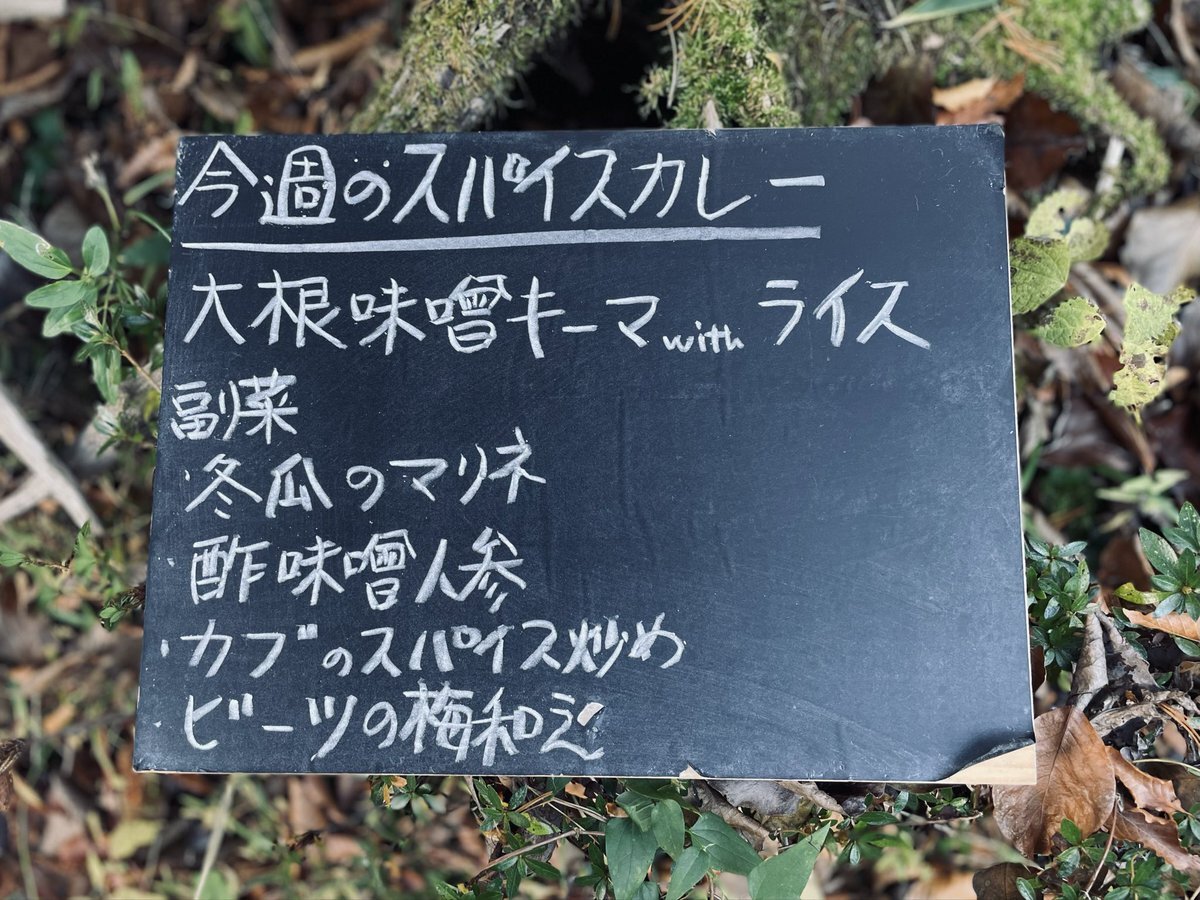 今週のスパイスカレー
大根味噌キーマwith ライス
副菜
・冬瓜のマリネ
・酢味噌人参
・カブのスパイス炒め
ビーツの梅和え